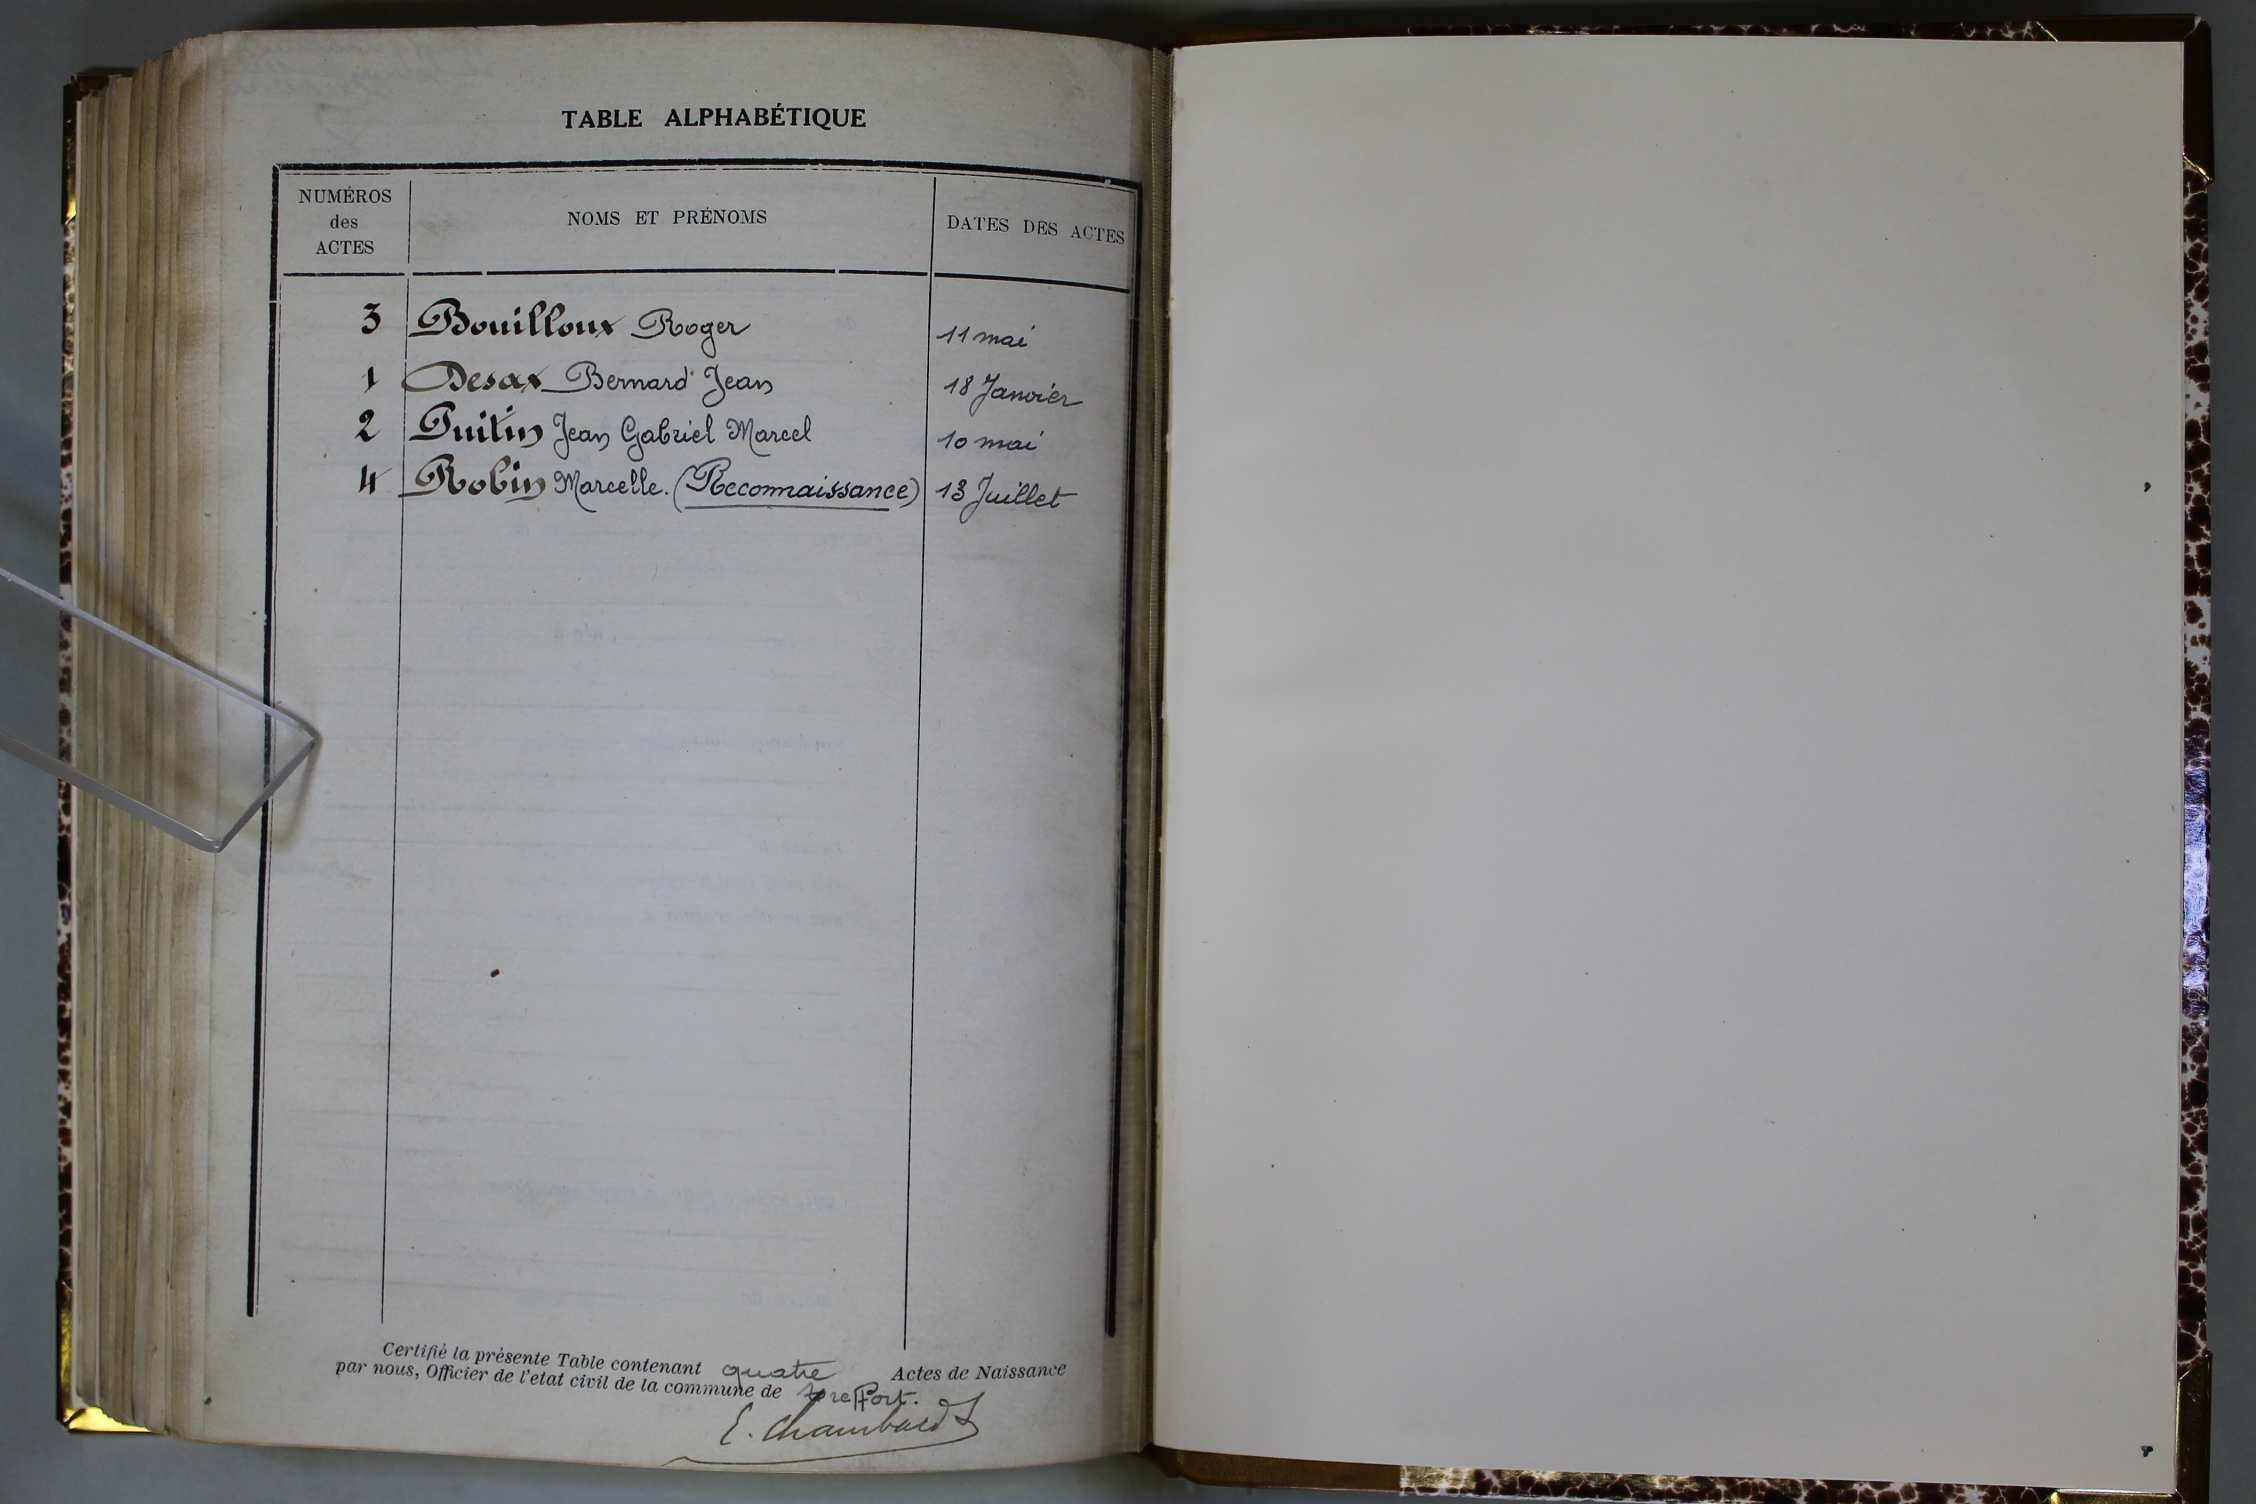 TABLE ALPHABÉTIQUE
NUMÉROS
des
ACTES
NOMS ET PRÉNOMS
DATES DES ACTES
3 Bouilloux Roger 11 mai
1 Desax Bernard Jean 18 Janvier
2 Guitin Jean Gabriel Marcel 10 mai
4 Robin Marcelle. (Reconnaissance) 13 Juillet
Certifié la présente Table contenant quatre Actes de Naissance
par nous, Officier de l'etat civil de la commune de Treffort.
E. Chambard